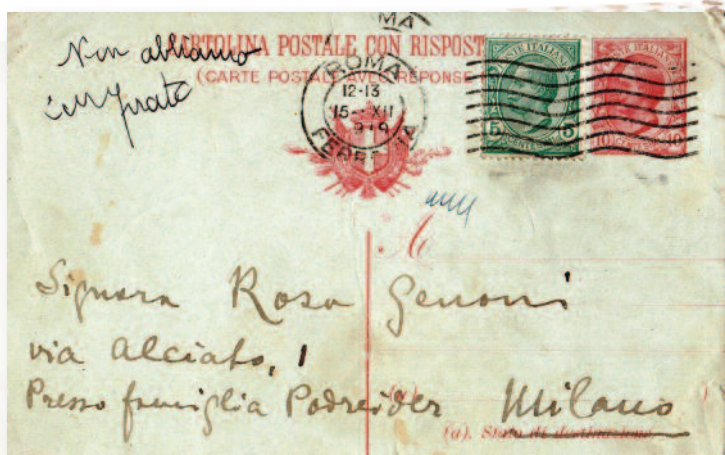 ROMA
CARTOLINA POSTALE CON RISPOST
(CARTE POSTALE AVEC RÉPONSE
Non abbiamo
ROMA
12-13
15-XII
919
FERROVIA
POSTE ITALIANE
5 CENTES. 5
POSTE ITALIANE
10 CENTES. 10
A
Signora Rosa Genoni
via Alciato, 1
Presso famiglia Podreider Milano
(a)
(a). Stato di destinazione